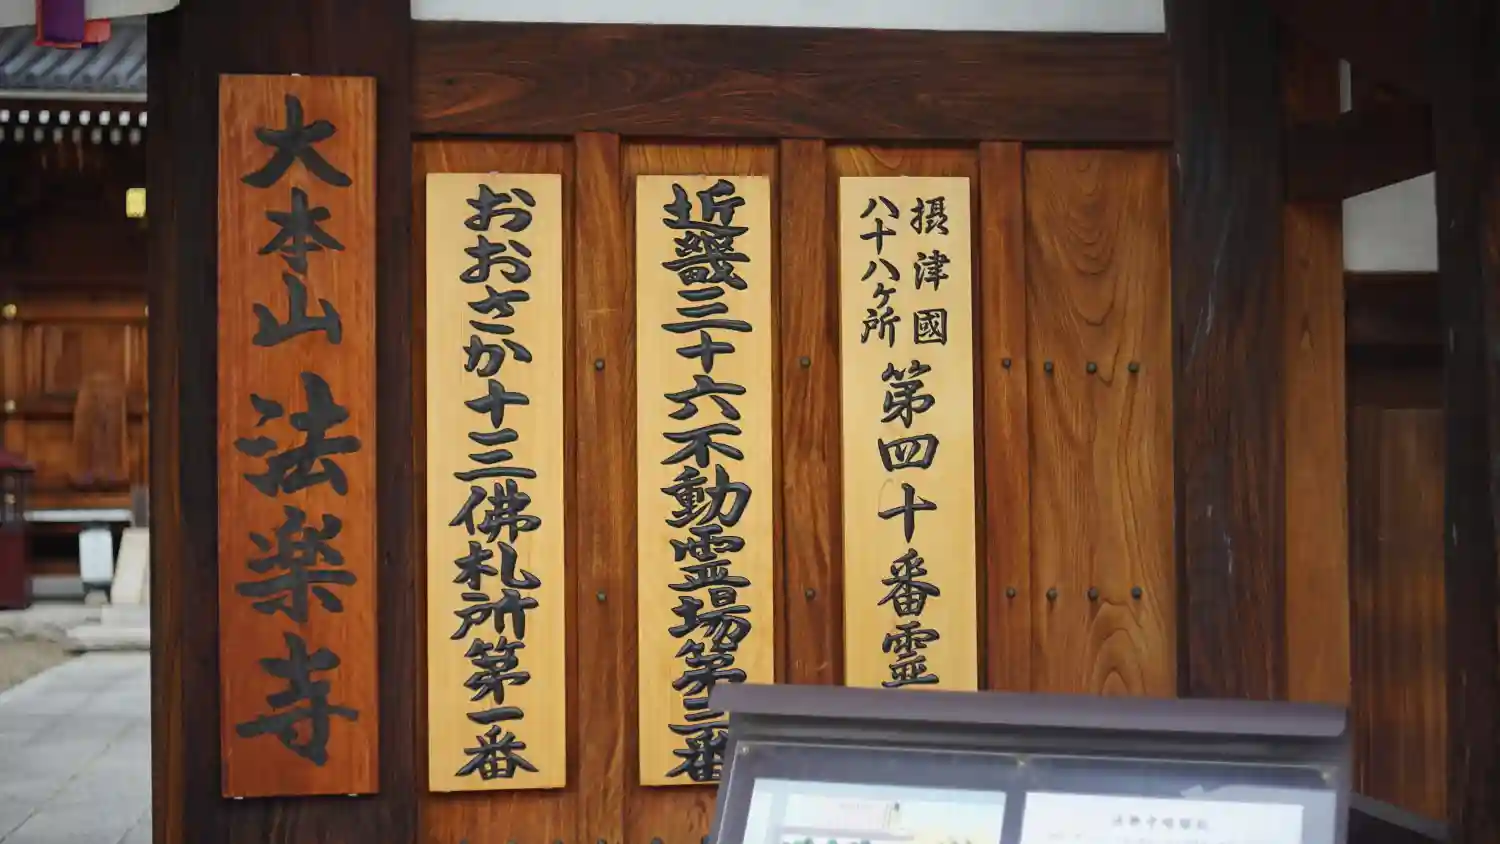 大本山 法楽寺
おおさか十三佛札所第一番
近畿三十六不動霊場第三番
摂津國
八十八ヶ所
第四十番霊